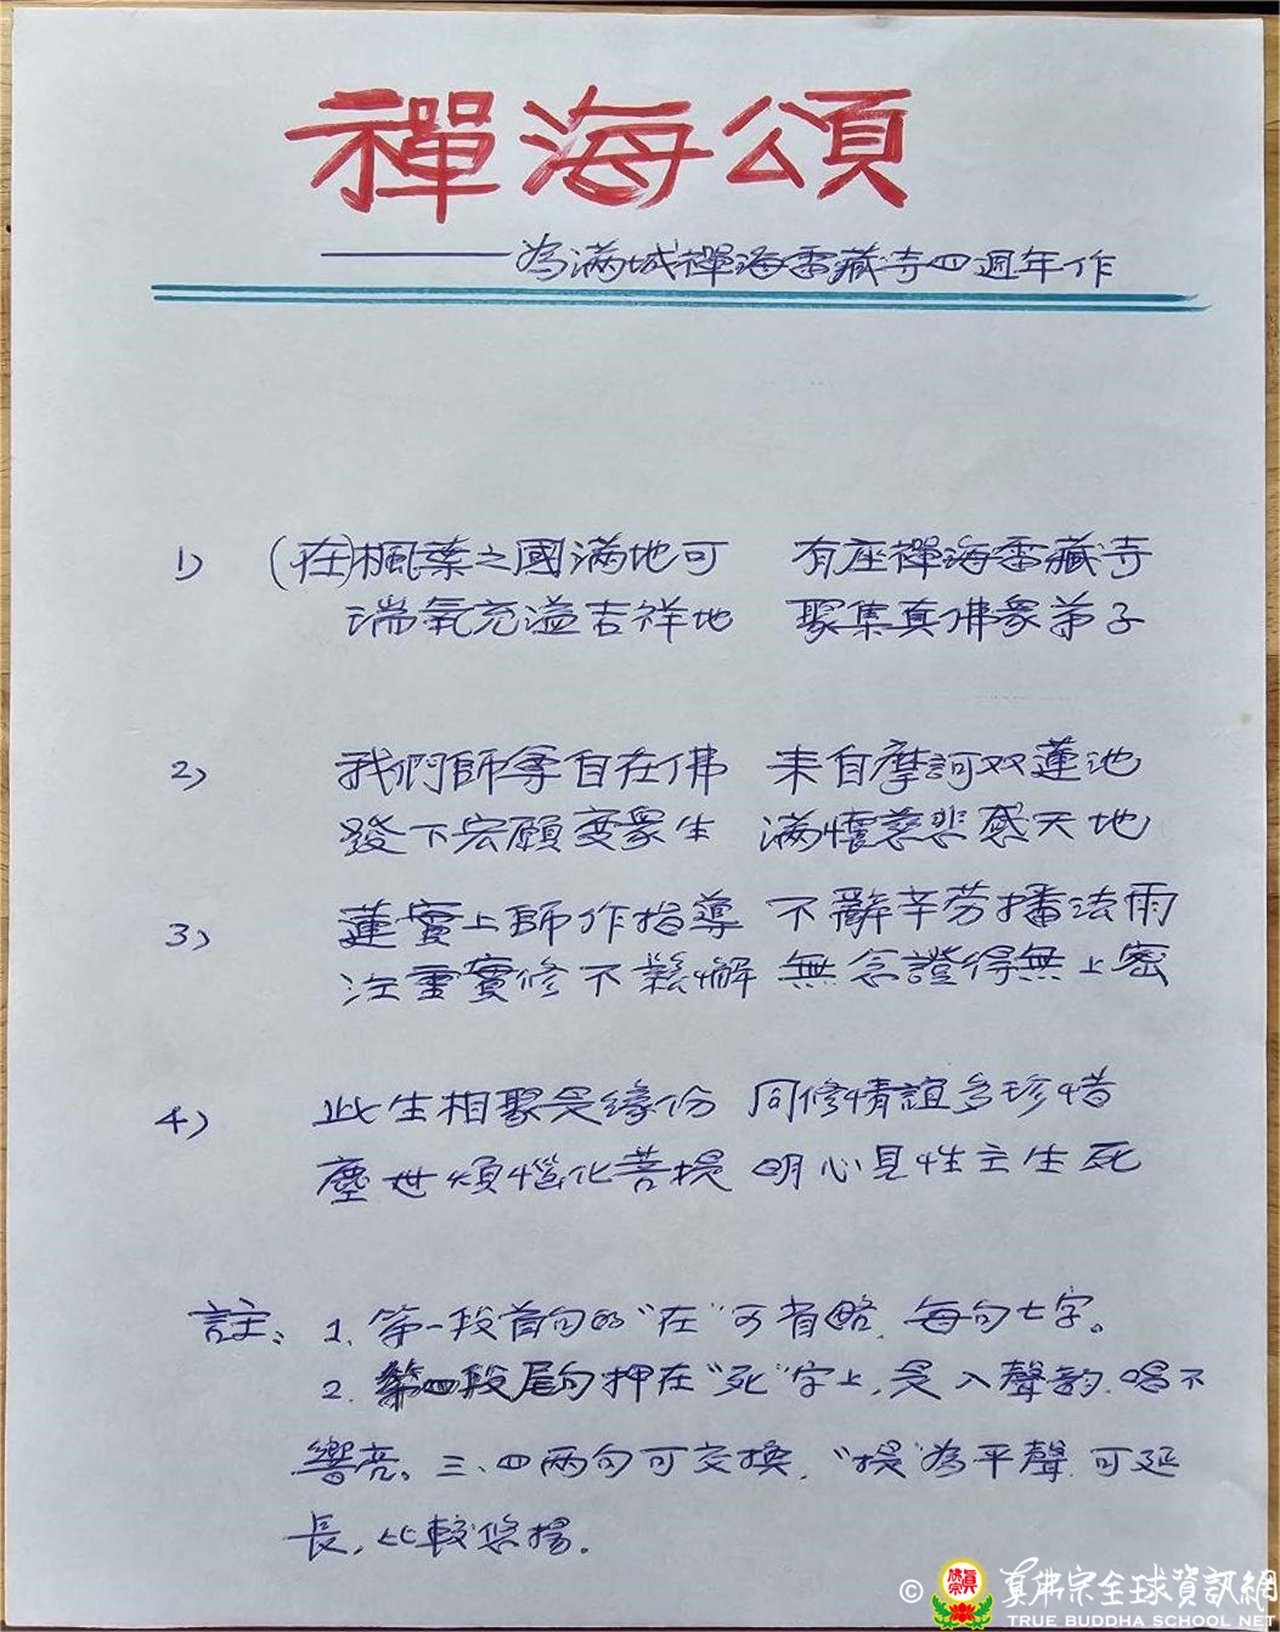 禪海頌
——為滿城禪海雷藏寺四週年作
1) (在)楓葉之國滿地可 有座禪海雷藏寺
瑞氣充溢吉祥地 聚集真佛眾弟子
2) 我們師尊自在佛 来自摩訶双蓮池
發下宏願度眾生 滿懷慈悲感天地
3) 蓮實上師作指導 不辭辛劳播法雨
注重實修不鬆懈 無念證得無上密
4) 此生相聚是緣份 同修情誼多珍惜
塵世煩惱化菩提 明心見性主生死
註: 1. 第一段首句的“在”可省略,每句七字。
2. 第四段尾句押在“死”字上,是入聲韵,唱不
響亮。三、四兩句可交換,“提”為平聲,可延
長,比較悠揚.
© 真佛宗全球資訊網
TRUE BUDDHA SCHOOL NET